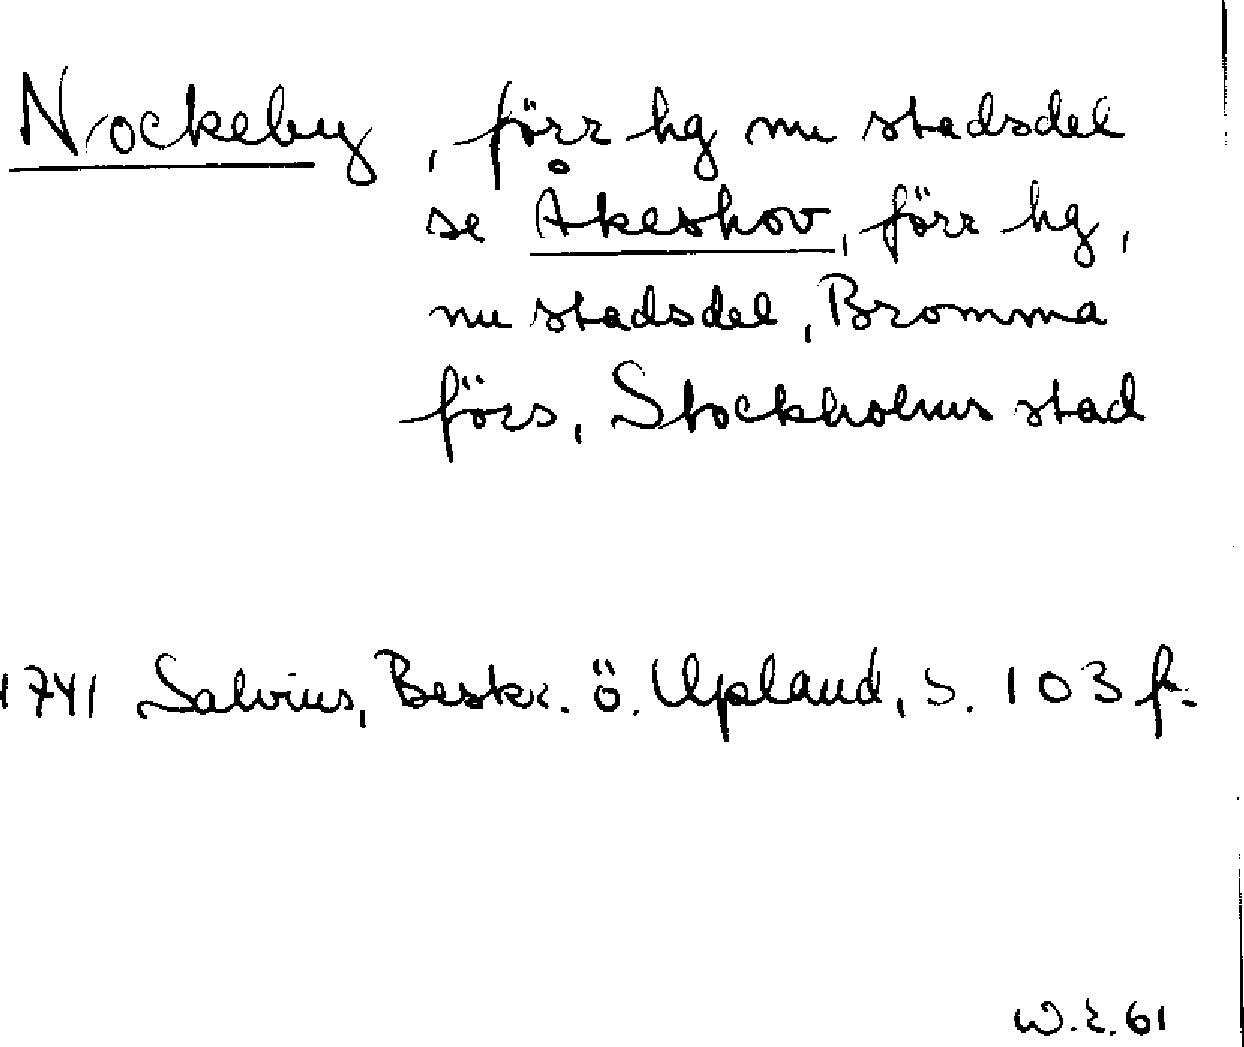 Nockeby, förr hg nu stadsdel
se Åkeshov, förr hg,
nu stadsdel, Bromma
förs, Stockholms stad
1741 Salvius, Beskr. ö. Upland, s. 103 f.
W.E.61